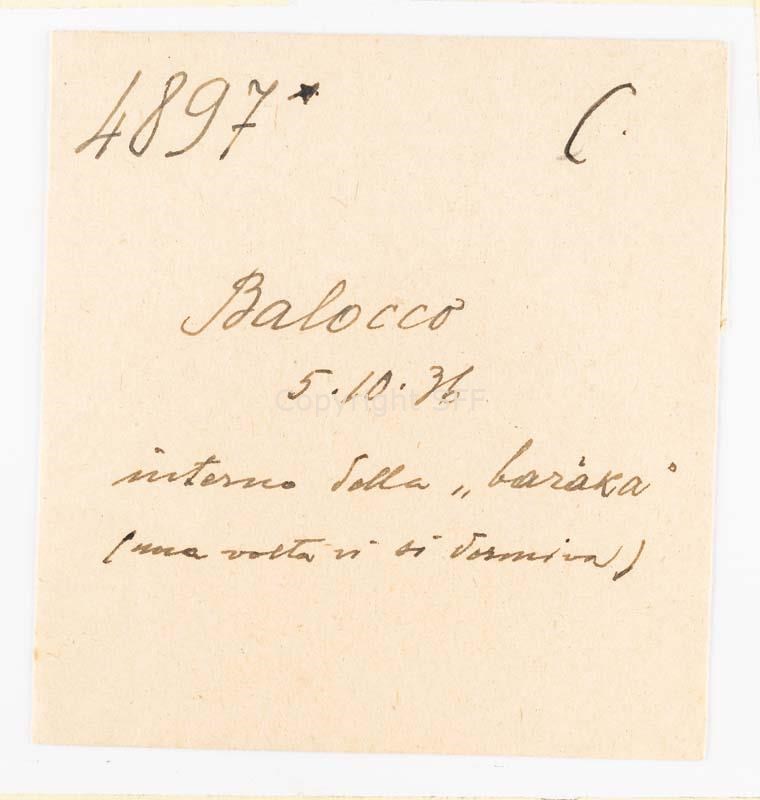 4897* C.
Balocco
5.10.36
Copyright SFF
interno della „baràka"
(una volta vi si dormiva)